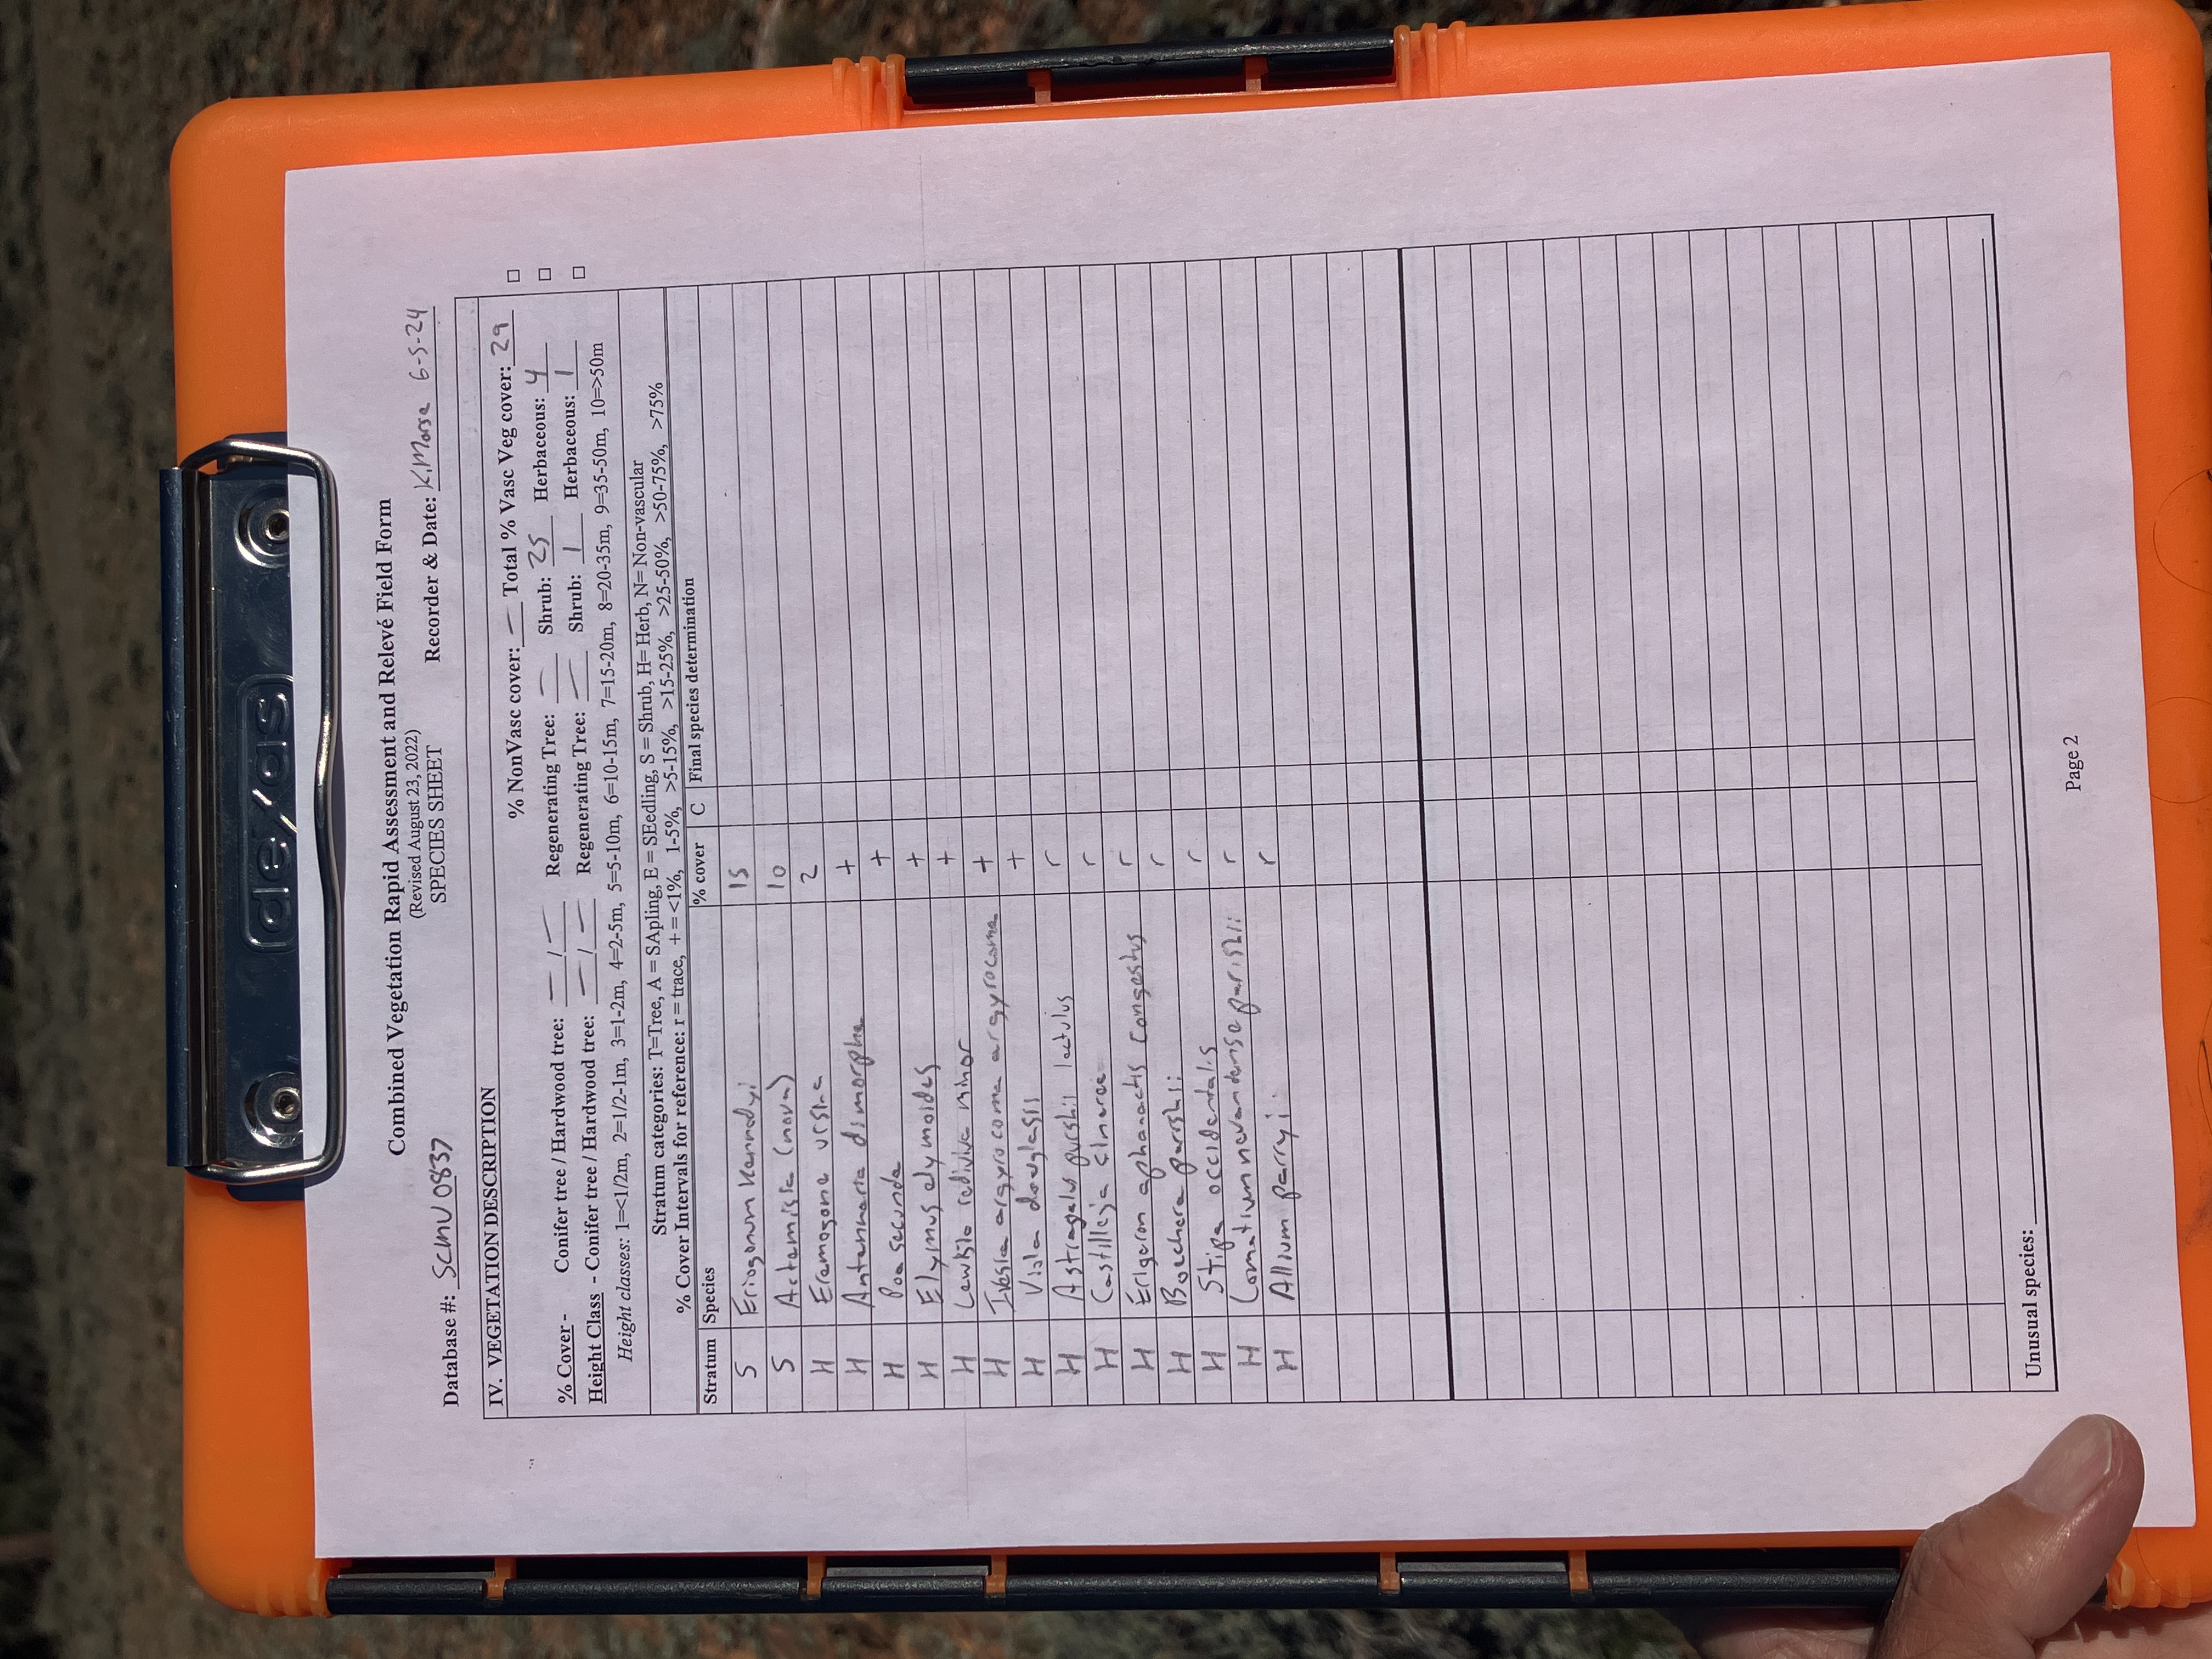 dexas
Combined Vegetation Rapid Assessment and Relevé Field Form
(Revised August 23, 2022)
SPECIES SHEET
Database #: SCMU0837 Recorder & Date: K.Morse 6-5-24
IV. VEGETATION DESCRIPTION
% NonVasc cover: — Total % Vasc Veg cover: 29 □
% Cover - Conifer tree / Hardwood tree: — / — Regenerating Tree: — Shrub: 25 Herbaceous: 4 □
Height Class - Conifer tree / Hardwood tree: — / — Regenerating Tree: — Shrub: 1 Herbaceous: 1 □
Height classes: 1=<1/2m, 2=1/2-1m, 3=1-2m, 4=2-5m, 5=5-10m, 6=10-15m, 7=15-20m, 8=20-35m, 9=35-50m, 10=>50m
Stratum categories: T=Tree, A = SApling, E = SEedling, S = Shrub, H= Herb, N= Non-vascular
% Cover Intervals for reference: r = trace, + = <1%, 1-5%, >5-15%, >15-25%, >25-50%, >50-75%, >75%
Stratum Species % cover C Final species determination
S Eriogonum kennedyi 15
S Artemisia (nova) 10
H Eremogone ursina 2
H Antennaria dimorpha +
H Poa secunda +
H Elymus elymoides +
H Lewisia rediviva minor +
H Ivesia argyrocoma argyrocoma +
H Viola douglasii +
H Astragalus purshii lectulus r
H Castilleja cinerea r
H Erigeron aphanactis congestus r
H Boechera parishii r
H Stipa occidentalis r
H Lomatium nevadense parishii r
H Allium parryi r
Unusual species:
Page 2